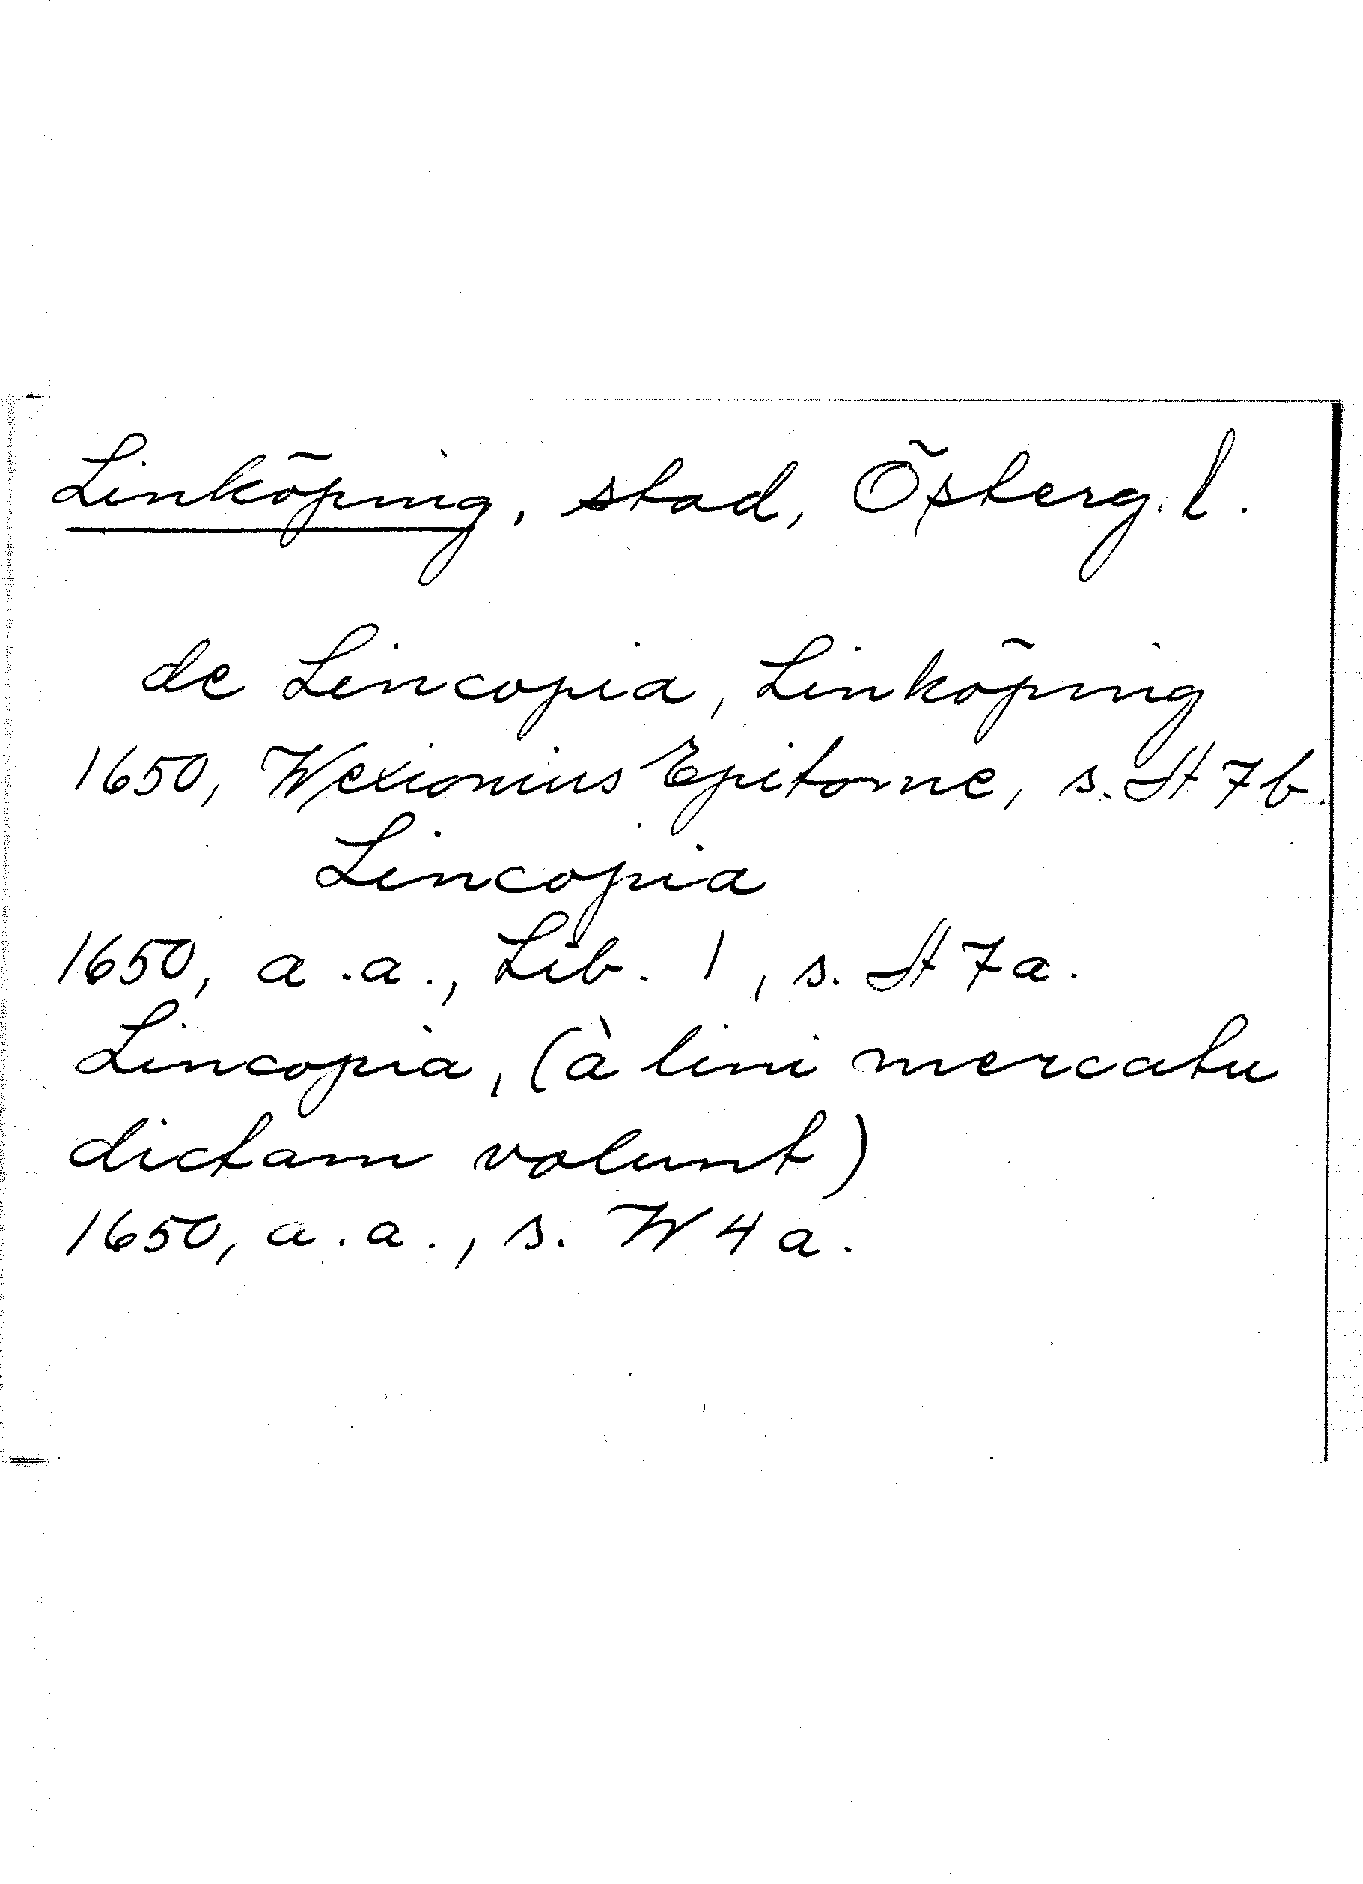 Linköping, stad, Österg. l.
de Lincopia, Linköping
1650, Wexionius Epitome, s. H 7 b.
Lincopia
1650, a.a., Lib. 1, s. H 7 a.
Lincopia, (à lini mercatu
dictam volunt)
1650, a.a., s. W 4 a.